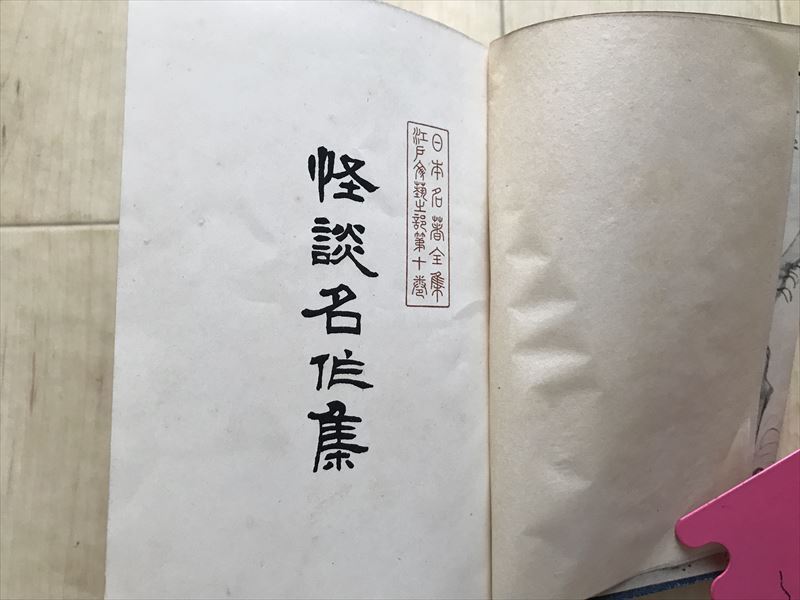 日本名著全集
江戸文藝之部第十巻
怪談名作集